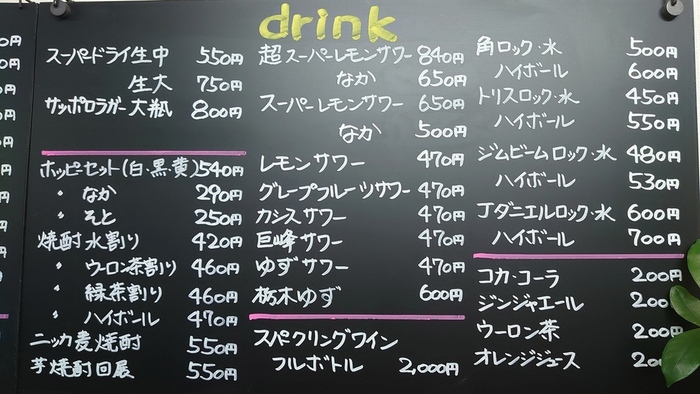 drink
スーパードライ生中 550円
生大 750円
サッポロラガー大瓶 800円
ホッピーセット(白・黒・黄) 540円
〃 なか 290円
〃 そと 250円
焼酎水割り 420円
〃 ウーロン茶割り 460円
〃 緑茶割り 460円
〃 ハイボール 470円
ニッカ麦焼酎 550円
芋焼酎回展 550円
超スーパーレモンサワー 840円
なか 650円
スーパーレモンサワー 650円
なか 500円
レモンサワー 470円
グレープフルーツサワー 470円
カシスサワー 470円
巨峰サワー 470円
ゆずサワー 470円
栃木ゆず 600円
スパークリングワイン
フルボトル 2,000円
角ロック・水 500円
ハイボール 600円
トリスロック・水 450円
ハイボール 550円
ジムビームロック・水 480円
ハイボール 530円
Jダニエルロック・水 600円
ハイボール 700円
コカ・コーラ 200円
ジンジャエール 200円
ウーロン茶 200円
オレンジジュース